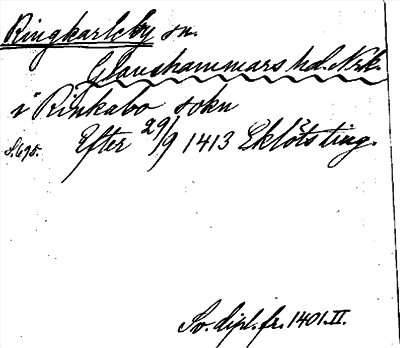 Ringkarleby sn.
Glanshammars hd. Nrk.
i Rinkabo sokn
S. 695. Efter 29/9 1413 Eklöts ting.
Sv. dipl. fr. 1401. II.